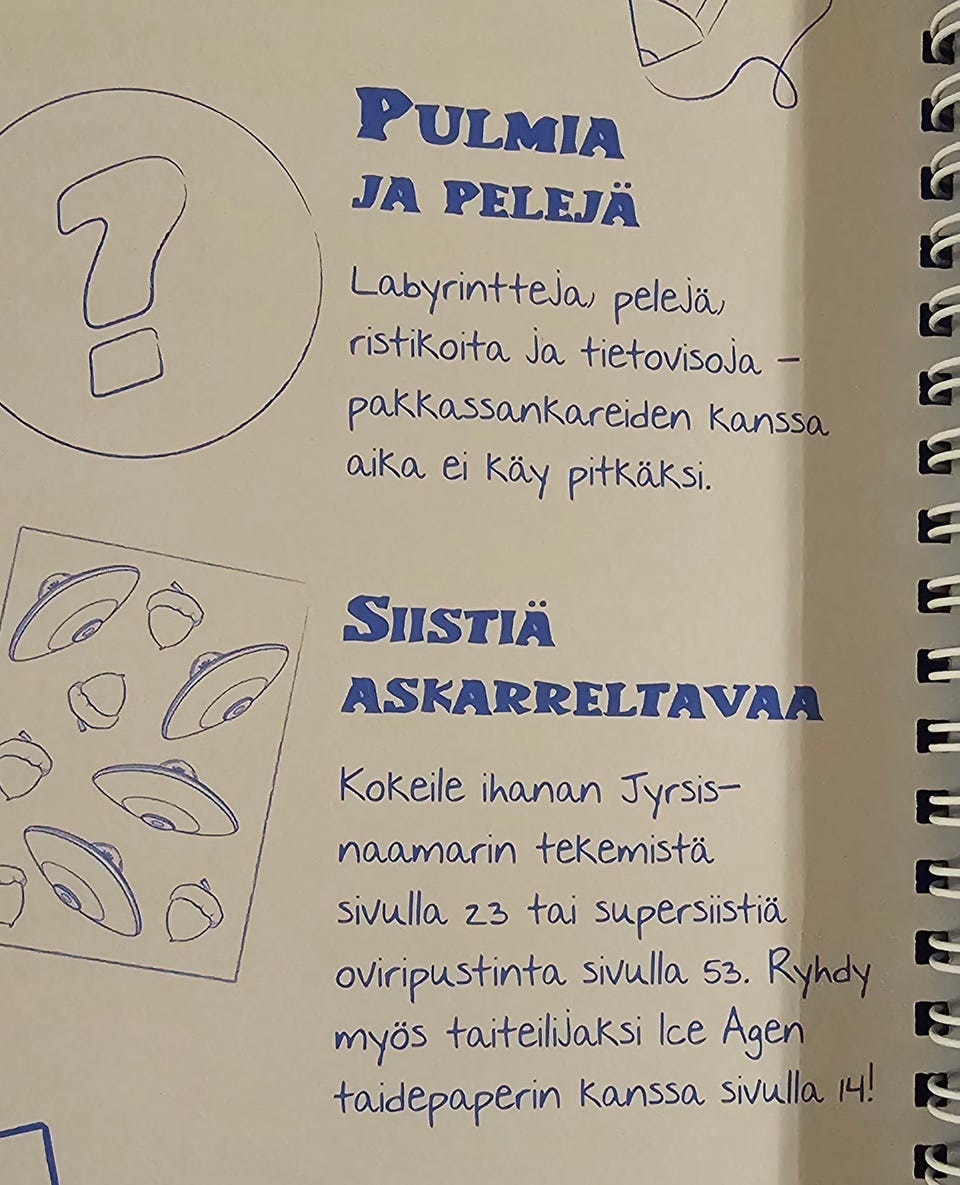 PULMIA
JA PELEJÄ
Labyrintteja, pelejä,
ristikoita ja tietovisoja –
pakkassankareiden kanssa
aika ei käy pitkäksi.
SIISTIÄ
ASKARRELTAVAA
Kokeile ihanan Jyrsis-
naamarin tekemistä
sivulla 23 tai supersiistiä
oviripustinta sivulla 53. Ryhdy
myös taiteilijaksi Ice Agen
taidepaperin kanssa sivulla 14!